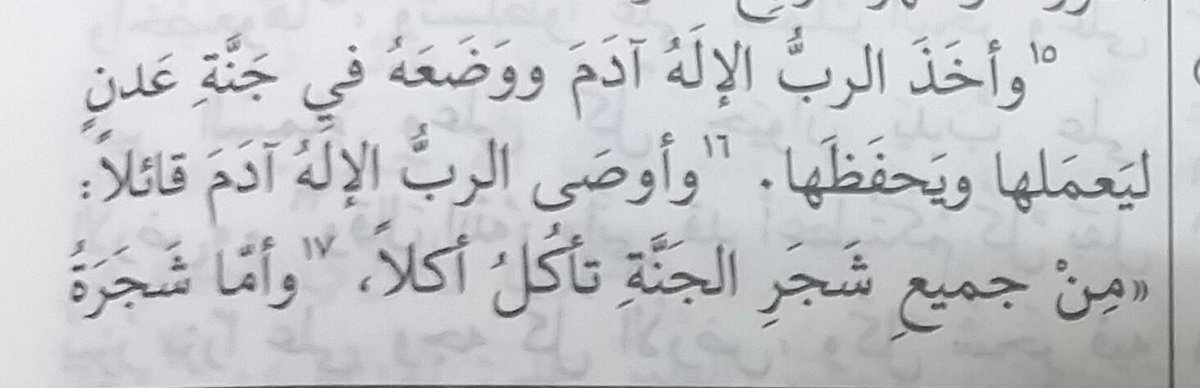 ١٥وأخَذَ الربُّ الإلَهُ آدَمَ ووَضَعَهُ في جَنَّةِ عَدنٍ
ليَعمَلها ويَحفَظَها. ١٦وأوصَى الربُّ الإلَهُ آدَمَ قائلاً:
«مِنْ جميعِ شَجَرِ الجَنَّةِ تأكُلُ أكلاً، ١٧وأمّا شَجَرَةُ